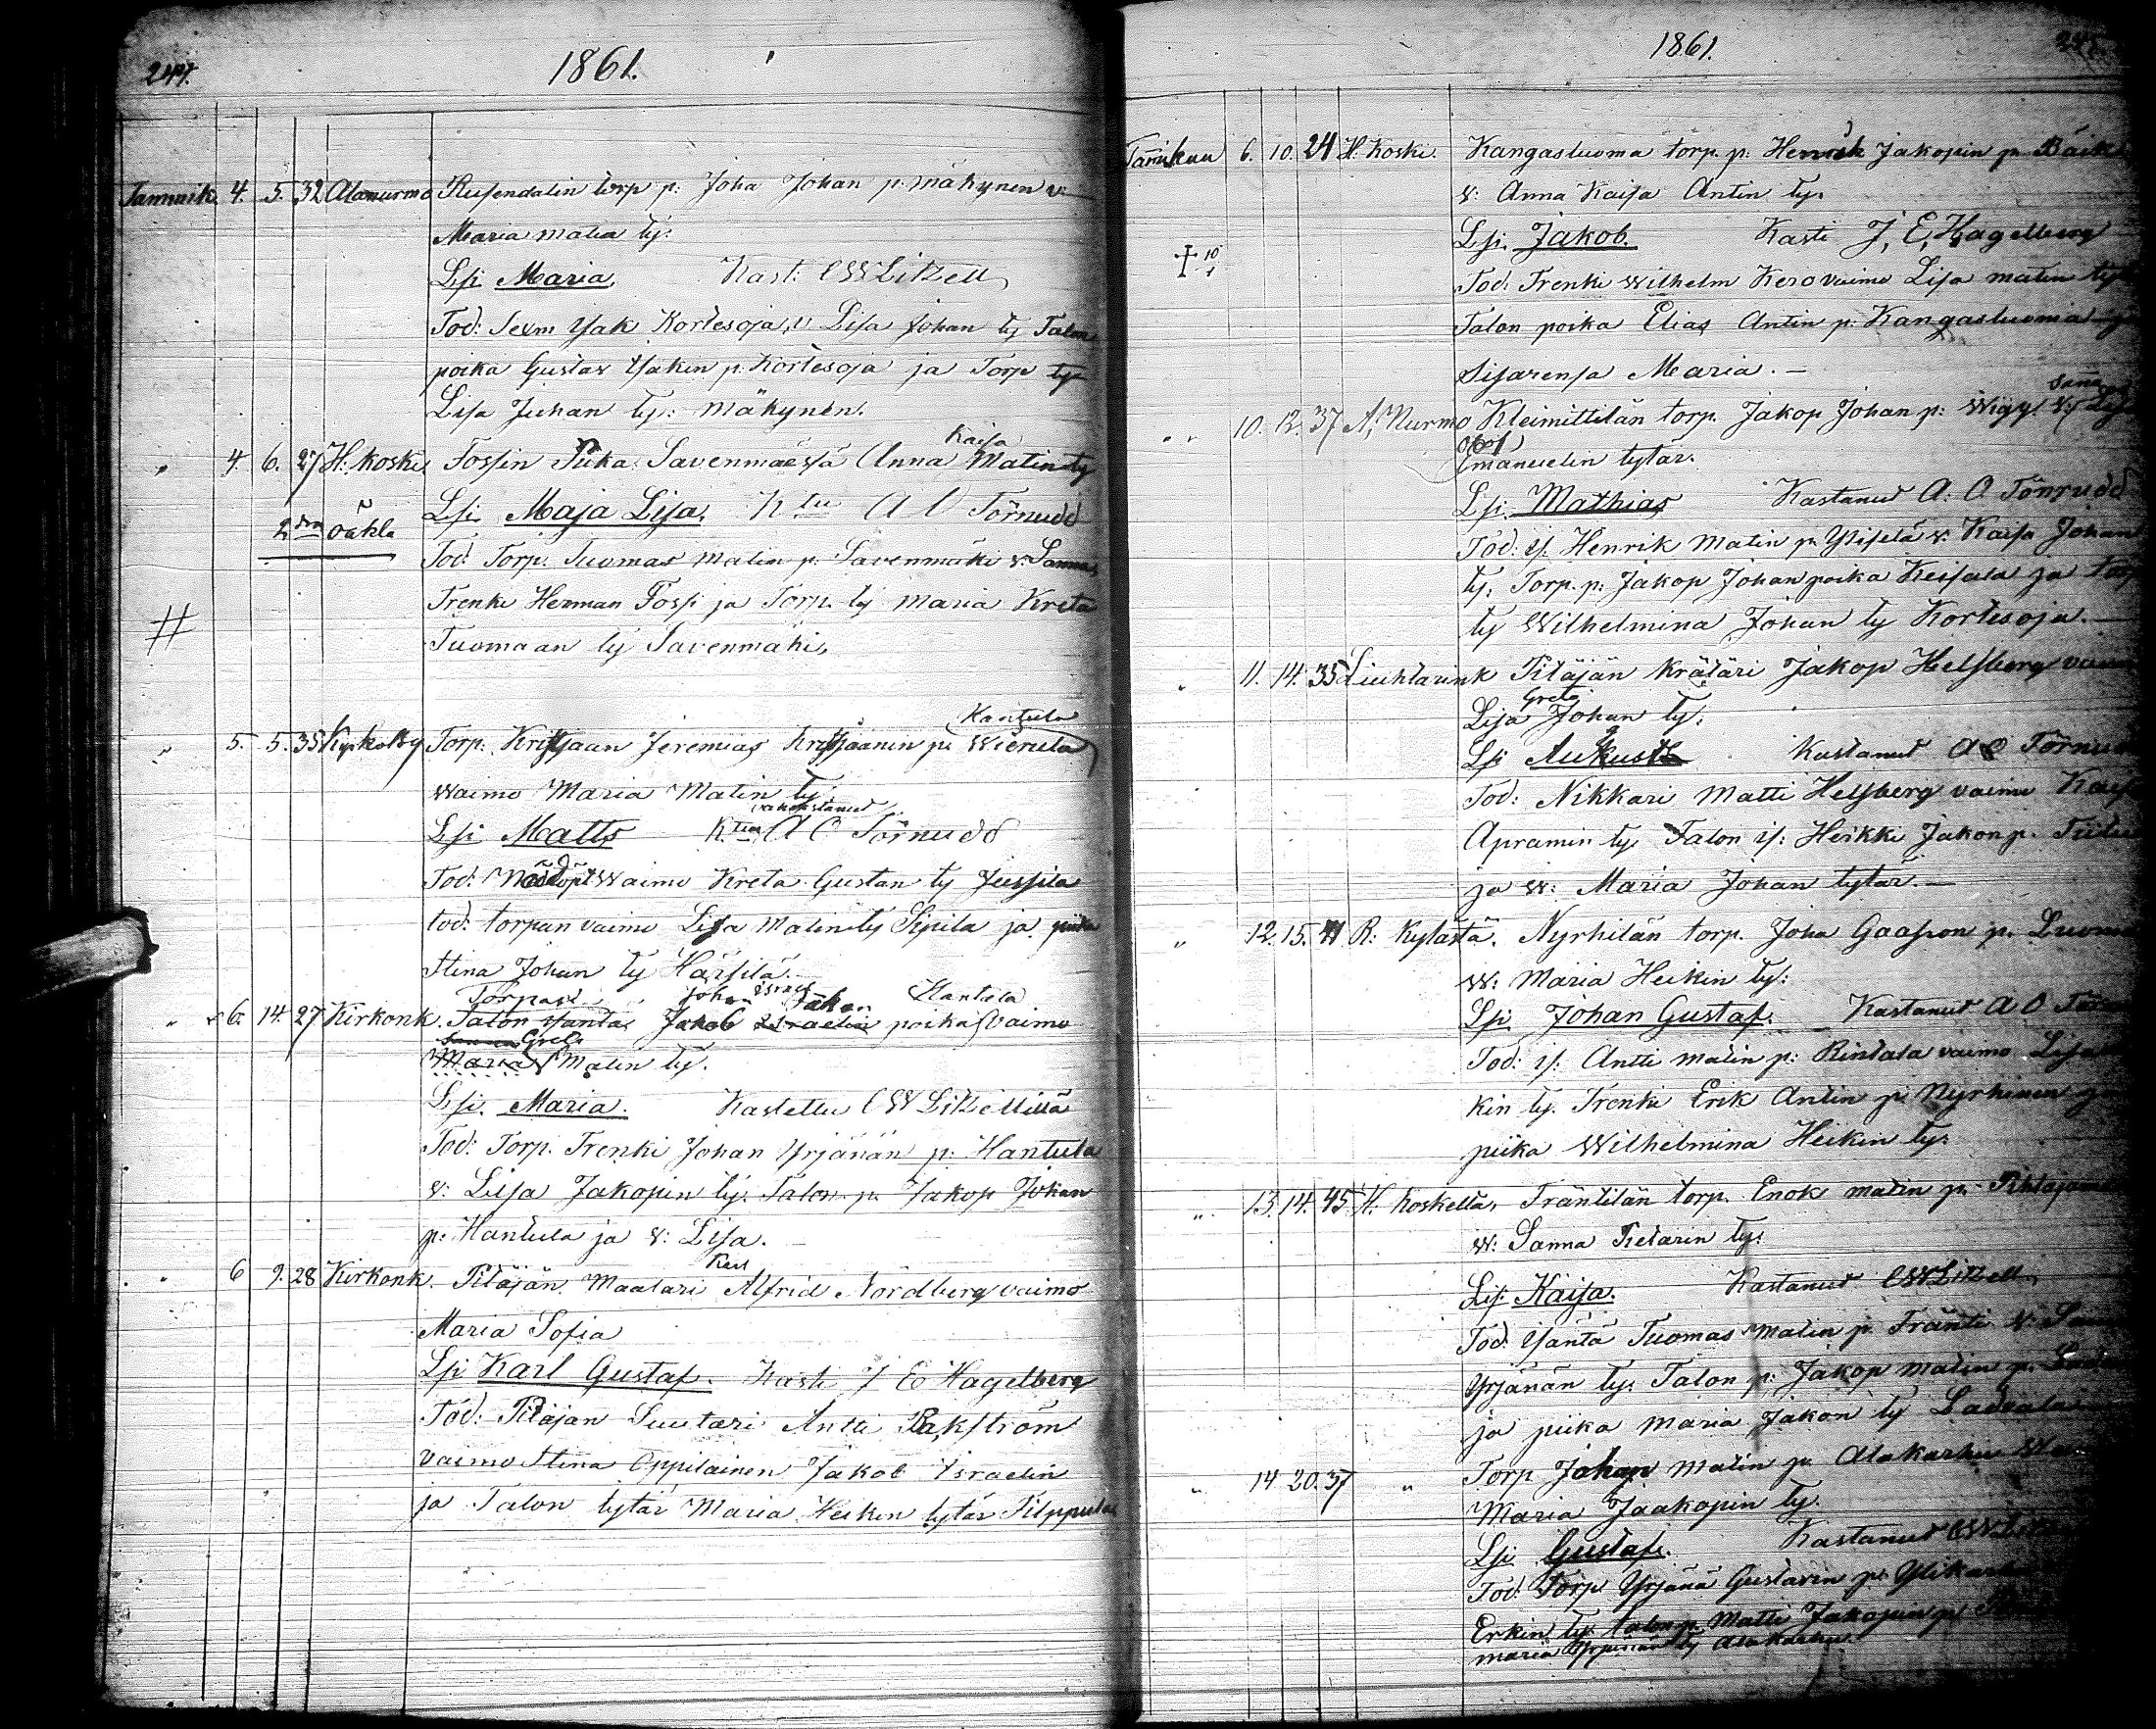 244.
1861.
Tammik. 4. 5. 32 Alanurmo Rusendalin torp p: Joha Johan p: Mäkynen v:
Maria Matin ty:
Lsi Maria. Kast: C W Litzell
Tod: Sexm Yak Kortesoja, v: Lisa Johan ty Talon
poika Gustav Yakin p: Kortesoja ja Torp ty
Lisa Juhan ty: Mäkynen.
" 4. 6. 27 H: Koski Fossin Piika Savenmäessä Anna Kaisa Matin ty
Lsi Maja Lisa. K tu A O Törnudd
2dra oäkta
Tod: Torp. Tuomas Matin p: Savenmäki v: Sanna
Trenki Herman Fossi ja Torp. ty Maria Kreta
#
Tuomaan ty Savenmäki.
" 5. 5. 35 Kyrkoby Torp: Kristjaan Jeremias Kristjaanin p: Wierula Kantula
waimo Maria Matin ty
Lsi Matts K tu A O Törnudd
Tod: waimo Kreta Gustan ty Jussila
tod: torpan vaimo Lisa Matin ty Sipila ja piika
Stina Johan ty Härsilä.
" 6. 14. 27 Kirkonk. Torpari Johan Israel Hantula
Talon Jakob Israelin poika vaimo
Sanna Greta
Maria Matin ty.
Lsi. Maria. Kastettu C W Litzelliltä
Tod: Torp. Trenki Johan Yrjänän p: Hantula
v: Lisa Jakopin ty. Talon p: Jakop Johan
p: Hantula ja v: Lisa.
" 6 9. 28 Kirkonk. Pitäjän Maalari Karl Alfrid Nordberg vaimo
Maria Sofia
Lsi Karl Gustaf. Kasti J E Hagelberg
Tod: Pitäjän Suutari Antti Bakström
vaimo Stina Oppilainen Jakob Israelin
ja Talon tytär Maria Heikin tytär Filppula
1861.
Tamikuu 6. 10. 24 H. Koski. Kangasluoma torp. p: Henrik Jakopin p.
v: Anna Kaisa Antin ty.
Lsi. Jakob. Kasti J. E. Hagelberg
† 10/1
Tod: Trenki Wilhelm Kero vaimo Lisa Matin ty
Talon poika Elias Antin p: Kangasluoma
Sisarensa Maria. —
" 10. 12. 37 A. Nurmo Kleimittilän torp. Jakop Johan p: v: Sanna
Emanuelin tytär.
Lsi. Mathias Kastanut A: O Törnudd
Tod: ys. Henrik Matin p. v: Kaisa Johan
ty. Torp. p: Jakop Johan poika Keisala ja torp
ty Wilhelmina Johan ty Kortesoja. —
" 11. 14. 35 Liuhtarink Pitäjän Krätäri Jakop Helsberg vaimo
Lisa Greta Johan ty.
Lsi Aukusti Kastanut A O Törnudd
Tod: Nikkari Matti Helsberg vaimo
Apramin ty. Talon is: Heikki Jakon p.
ja w: Maria Johan tytär. —
" 12. 15. 41 R: Kylästä. Nyrhilän torp. Joha p.
w: Maria Heikin ty:
Lsi. Johan Gustaf. Kastanut A O
Tod: is: Antti Matin p: Rintala vaimo Lisa
kin ty. Trenki Erik Antin p: Nyrhinen
piika Wilhelmina Heikin ty.
" 13. 14. 45 H. Koskelta, Träntilän torp. Enok Matin p.
w: Sanna Pietarin ty.
Lsi: Kaisa. Kastanut C W Litzell
Tod: Tuomas Matin p. Tränti v:
Yrjänän ty. Talon p: Jakop Matin p.
ja piika Maria Jakon ty
" 14. 20. 37 " Torp Johan Matin p. Alakarhu
Maria Jaakopin ty.
Lsi Gustaf. Kastanut
Tod: Torp Yrjänä Gustavin p:
Erkin ty. talon p: Matti Jakopin p
Maria ty Alakarhu